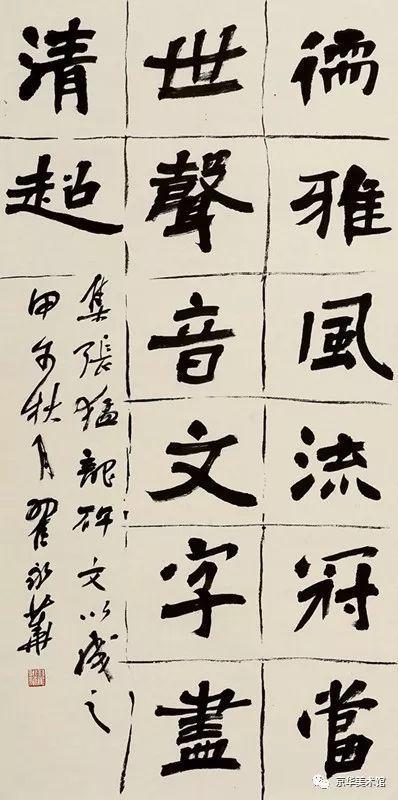 儒雅風流冠當
世聲音文字盡
清超
集張猛龍碑文以成之
甲午秋月翟永華
京华美术馆